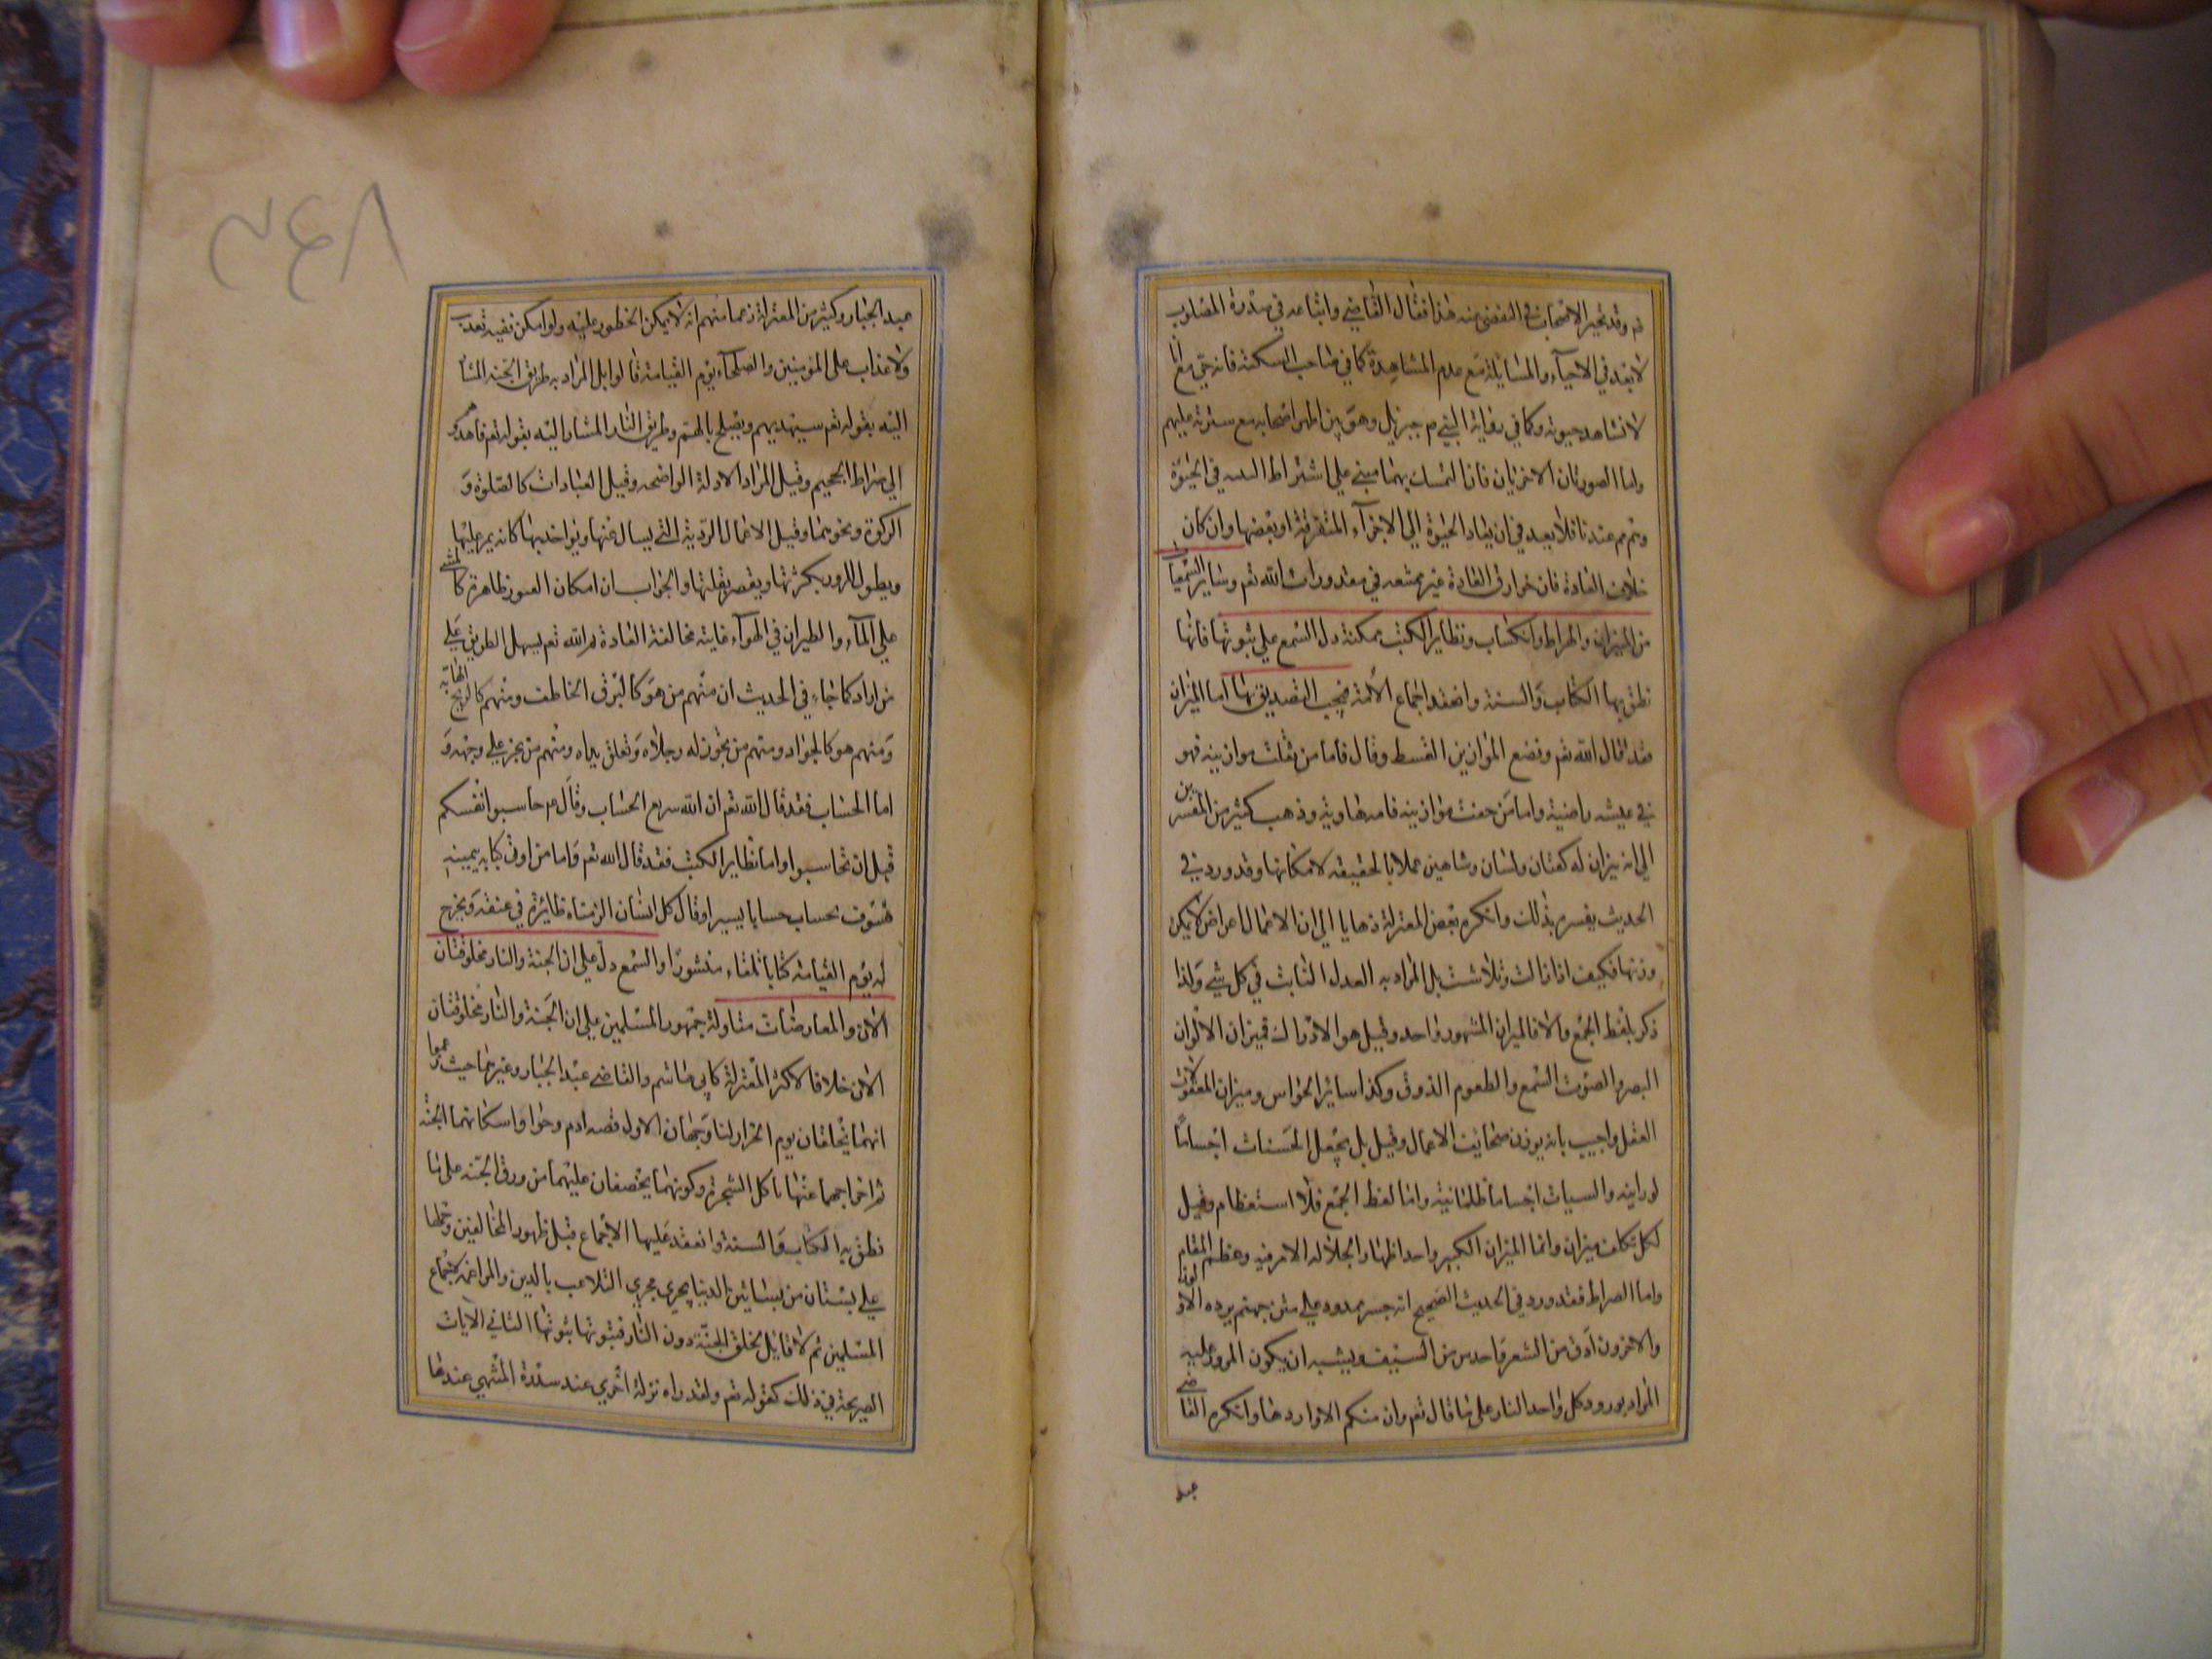 قد تحير الاصحاب في التفصي عن هذا فقال القاضي واتباعه في صورة المصلوب
لا بعد في الاحياء والمسايلة مع عدم المشاهدة كما في صاحب السكتة فانه حي مع انا
لا نشاهد حيوته وكما في رؤية النبي م جبريل وهو بين اظهر اصحابه مع ستره عليهم
واما الصورتان الاخريان فان التمسك بهما مبني على اشتراط البنية في الحيوة
وهو مم عندنا فلا بعد في ان يعاد الحيوة الى الاجزاء المتفرقة او بعضها وان كان
خلاف العادة فان خوارق العادة غير ممتنعه في مقدورات الله تعم وساير السمعيات
من الميزان والصراط والحساب وتطاير الكتب ممكنة دل السمع على ثبوتها فانها
نطق بها الكتاب والسنة وانعقد اجماع الامة فيجب التصديق بها اما الميزان
فقد قال الله تعم ونضع الموازين القسط وقال فاما من ثقلت موازينه فهو
في عيشه راضية واما من خفت موازينه فامه هاوية وذهب كثير من المفسرين
الى انه ميزان له كفتان ولسان وشاهين عملا بالحقيقه لامكانها وقد ورد في
الحديث تفسيره بذلك وانكره بعض المعتزلة ذهابا الى ان الاعمال اعراض لا يمكن
وزنها فكيف اذا زالت وتلاشت بل المراد به العدل الثابت في كل شيء ولذا
ذكر بلفظ الجمع والا فالميزان المشهور واحد وقيل هو الادراك فميزان الالوان
البصر والصوت السمع والطعوم الذوق وكذا ساير الحواس وميزان المعقولات
العقل واجيب بانه يوزن صحايف الاعمال وقيل بل يجعل الحسنات اجساما
نورانيه والسيات اجساما ظلمانية واما لفظ الجمع فللاستعظام وقيل
لكل مكلف ميزان وانما الميزان الكبير واحد اظهارا لجلاله الامر فيه وعظم المقام
واما الصراط فقد ورد في الحديث الصحيح انه جسر ممدود على متن جهنم يرده الاولون
والاخرون ادق من الشعر واحد من السيف ويشبه ان يكون المرور عليه
المراد بورود كل واحد النار على ما قال تعم وان منكم الا واردها وانكره القاضي
عبد
عبد الجبار وكثير من المعتزلة زعما منهم انه لا يمكن الخطور عليه ولو امكن ففيه تعذيب
ولا عذاب على المؤمنين والصلحاء يوم القيامة قالوا بل المراد به طريق الجنه المشار
اليه بقوله تعم سيهديهم ويصلح بالهم وطريق النار المشار اليه بقوله تعم فاهدوهم
الى صراط الجحيم وقيل المراد الادلة الواضحه وقيل العبادات كالصلوة و
الزكوة ونحوهما وقيل الاعمال الردية التي يسال عنها ويواخذ بها كانه يمر عليها
ويطول المرور بكثرتها ويقصر بقلتها والجواب ان امكان العبور ظاهرة كالمشي
على المآء والطيران في الهوآء غايته مخالفة العادة ثم الله تعم يسهل الطريق على
من اراد كما جاء في الحديث ان منهم من هو كالبرق الخاطف ومنهم كالريح الهابة
ومنهم هو كالجواد ومنهم من يجوز له رجلاه وتعلق يداه ومنهم من يجر على وجهه و
اما الحساب فقد قال الله تعم ان الله سريع الحساب وقال م حاسبوا انفسكم
قبل ان تحاسبوا واما تطاير الكتب فقد قال الله تعم واما من اوتى كتابه بيمينه
فسوف يحاسب حسابا يسيرا وقال كل انسان الزمناه طائره في عنقه ونخرج
له يوم القيامة كتابا يلقاه منشورا والسمع دل على ان الجنة والنار مخلوقتان
الان والمعارضات متاولة جمهور المسلمين على ان الجنة والنار مخلوقتان
الان خلافا لاكثر المعتزلة كابي هاشم والقاضي عبد الجبار وغيرهما حيث زعموا
انهما يخلقان يوم الجزاء لنا وجهان الاول قصه ادم وحوا واسكانهما الجنة
ثم اخراجهما عنها باكل الشجرة وكونهما يخصفان عليهما من ورق الجنه على ما
نطق به الكتاب والسنة وانعقد عليها الاجماع قبل ظهور المخالفين وحملها
على بستان من بساتين الدنيا يجرى مجرى التلاعب بالدين والمراغمة لاجماع
المسلمين ثم لا قايل بخلق الجنة دون النار فثبوتها ثبوتها الثاني الآيات
الصريحة في ذلك كقوله تعم ولقد راه نزلة اخرى عند سدرة المنتهى عندها